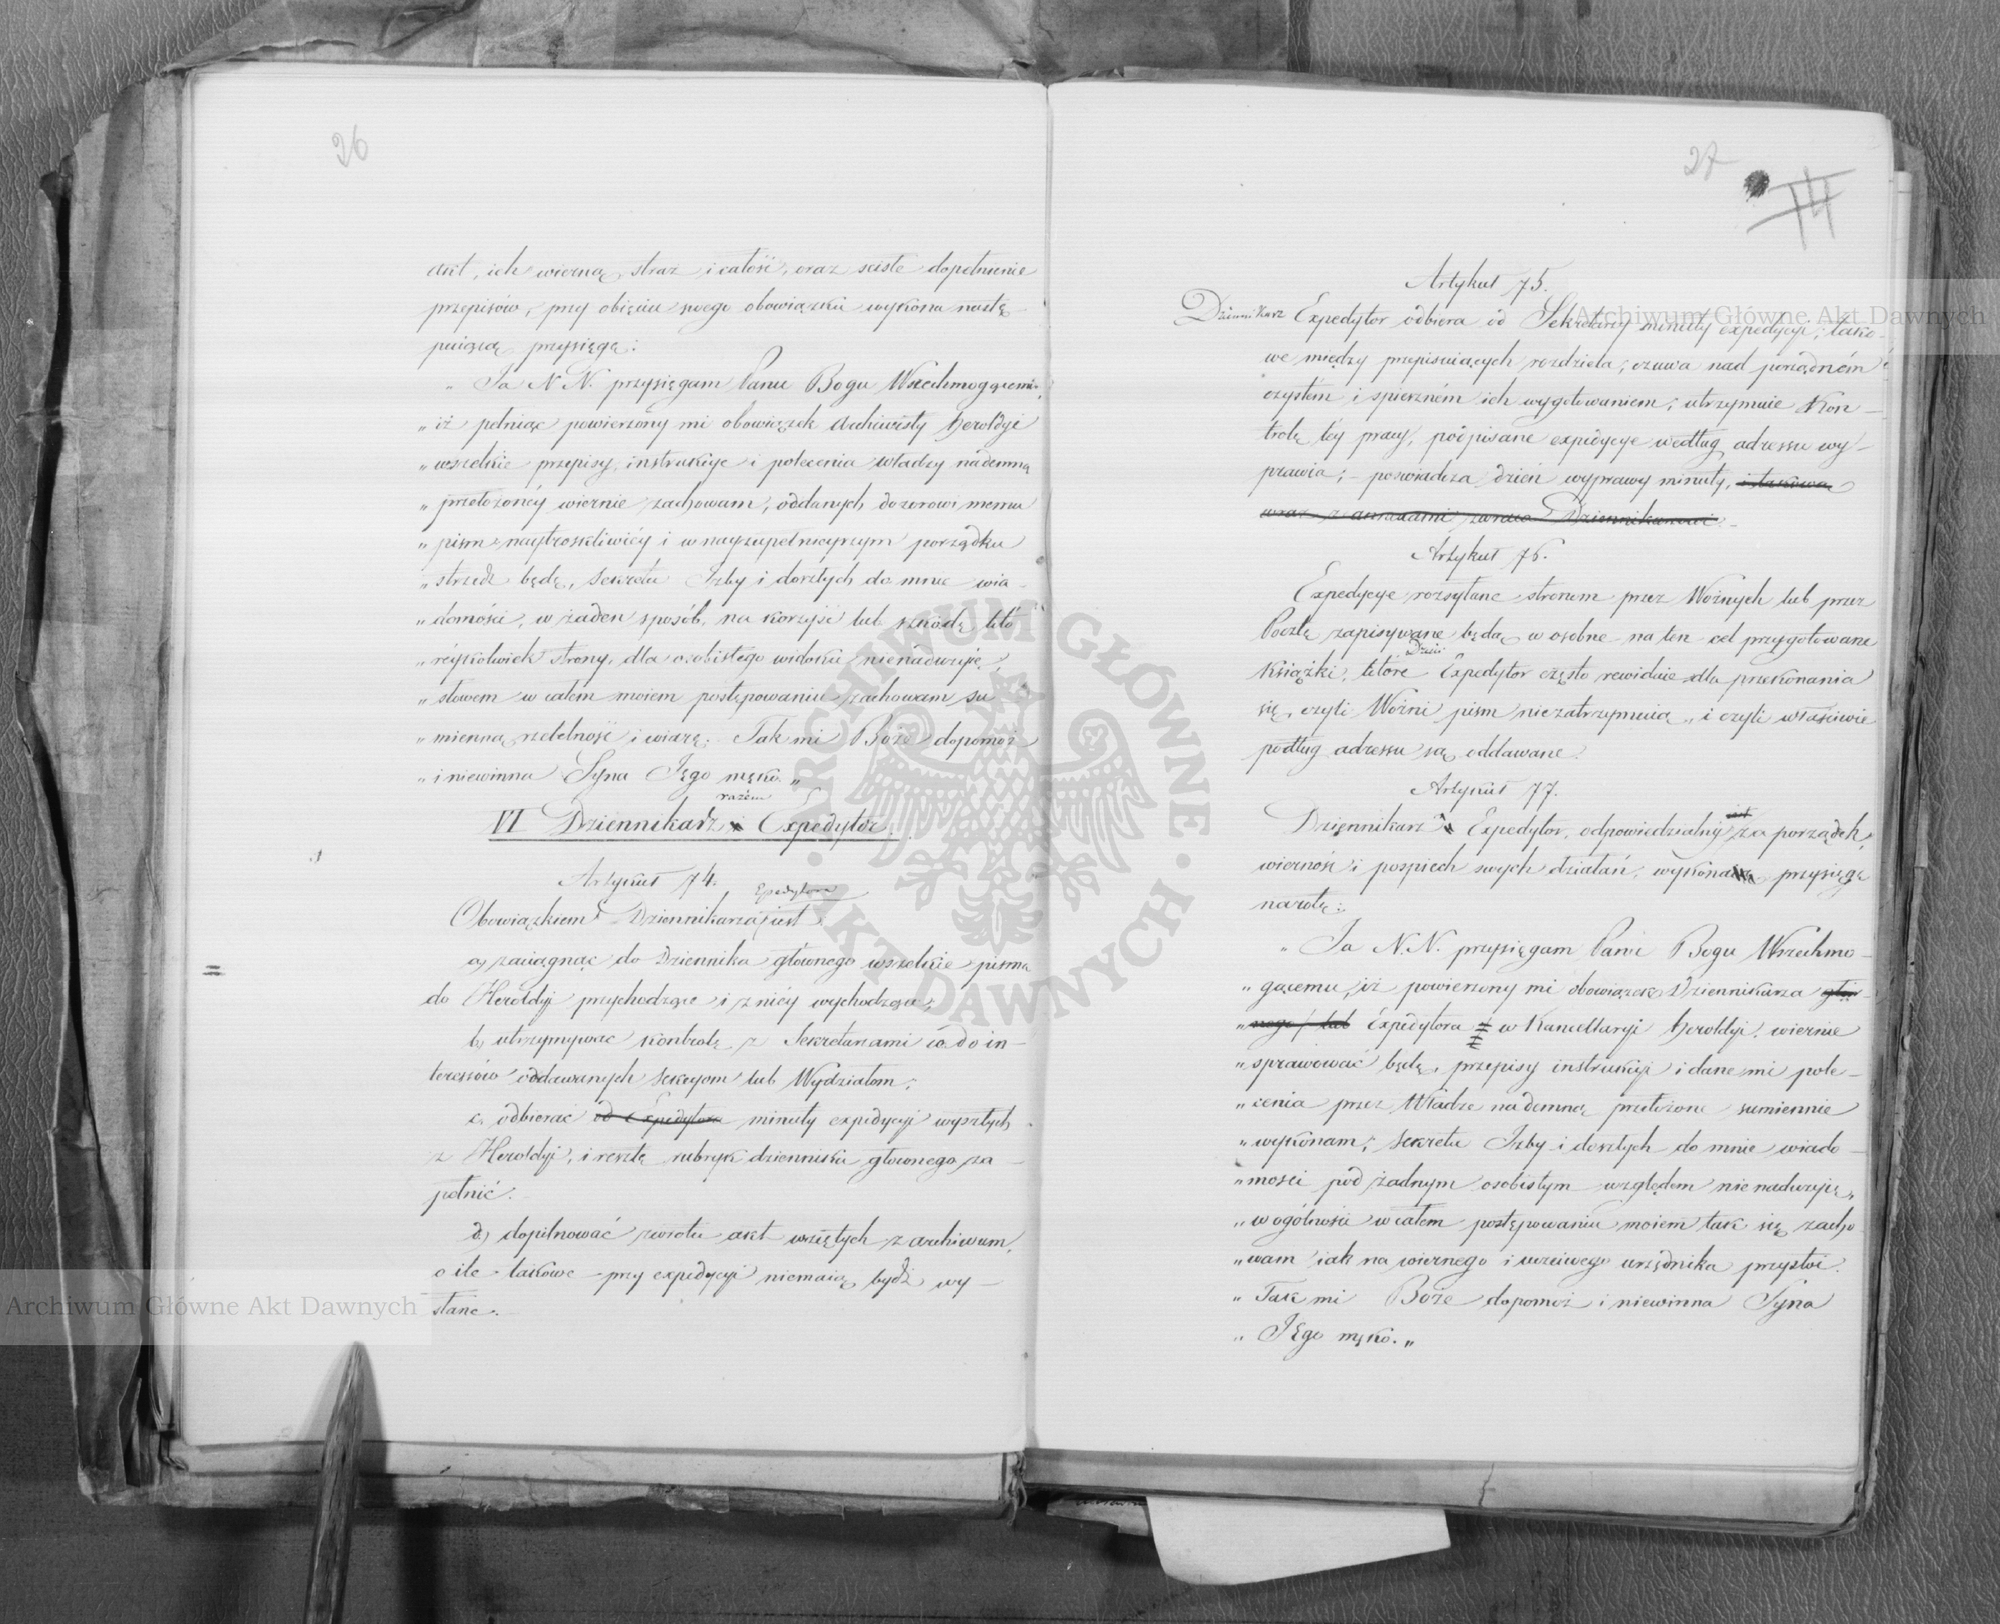 26
akt, ich wierną straż i całość, oraz ścisłe dopełnienie
przepisów, przy obięciu swego obowiązku wykona nastę-
puiącą przysięgę:
„ Ja N N. przysięgam Panu Bogu Wszechmogącemu,
„ iż pełniąc powierzony mi obowiązek Archiwisty Heroldyi
„ wszelkie przepisy, instrukcye i polecenia władzy nademną
„ przełożonéy wiernie zachowam, oddanych dozorowi memu
„ pism naytroskliwiéy i w nayzupełnieyszym porządku
„ strzedz będę, sekretu Izby i doszłych do mnie wia-
„ domości, w żaden sposób, na korzyść lub szkodę któ
„ réykolwiek strony, dla osobistego widoku nienadużyię,
„ słowem w całem moiem postępowaniu zachowam su
„ mienną rzetelność i wiarę. Tak mi Boże dopomóż
„ i niewinna Syna Jego męko. „
razem
VI Dziennikarz i Expedytor.
Artykuł 74.
Expedytora
Obowiązkiem Dziennikarza jest
a, zaciągnąć do Dziennika głównego wszelkie pisma
do Heroldyi przychodzące i z niéy wychodzące;
b, utrzymywać kontrolę z Sekretarzami co do in-
teressów oddawanych Sekcyom lub Wydziałom;
c, odbierać od Expedytora minuty expedycyi wyszłych
z Heroldyi, i resztę rubryk dziennika głównego za-
pełnić.
d, dopilnować zwrotu akt wziętych z archiwum,
o ile takowe przy expedycyi niemaią bydź wy-
słane.
27
14
Artykuł 75.
Dziennikarz Expedytor odbiera od Sekretarzy minuty expedycyi; tako-
we między przepisuiących rozdziela; czuwa nad porządném
czystem i spieszném ich wygotowaniem; utrzymuie Kon-
trolę téy pracy, podpisane expedycye według adressu wy-
prawia; poświadcza dzień wyprawy minuty, i takowe
wraz z annexami zwraca Dziennikarzowi.
Artykuł 76.
Expedycye rozsyłane stronom przez Woźnych lub przez
Pocztę zapisywane będą w osobne na ten cel przygotowane
Dzien
Książki, które Expedytor często rewiduie dla przekonania
się, czyli Woźni pism niezatrzymuią, i czyli właściwie
podług adressu są oddawane.
Artykuł 77.
Dziennikarz i Expedytor, odpowiedzialny za porządek,
wierność i pospiech swych działań, wykona przysięgę
na rotę:
„ Ja N.N. przysięgam Panu Bogu Wszechmo-
„ gącemu, iż powierzony mi obowiązek Dziennikarza głó-
„ wnego / lub Expedytora w Kancellaryi Heroldyi, wiernie
„ sprawować będę, przepisy instrukcyi i dane mi pole-
„ cenia przez Władze nademną przełożone sumiennie
„ wykonam; sekretu Izby i doszłych do mnie wiado-
„ mości pod żadnym osobistym względem nienadużyię,
„ w ogólności w całem postępowaniu moiem tak się zacho
„ wam iak na wiernego i uczciwego urzędnika przystoi.
„ Tak mi Boże dopomóż i niewinna Syna
„ Jego męko. „
Archiwum Główne Akt Dawnych
Archiwum Główne Akt Dawnych
ARCHIWUM GŁÓWNE AKT DAWNYCH